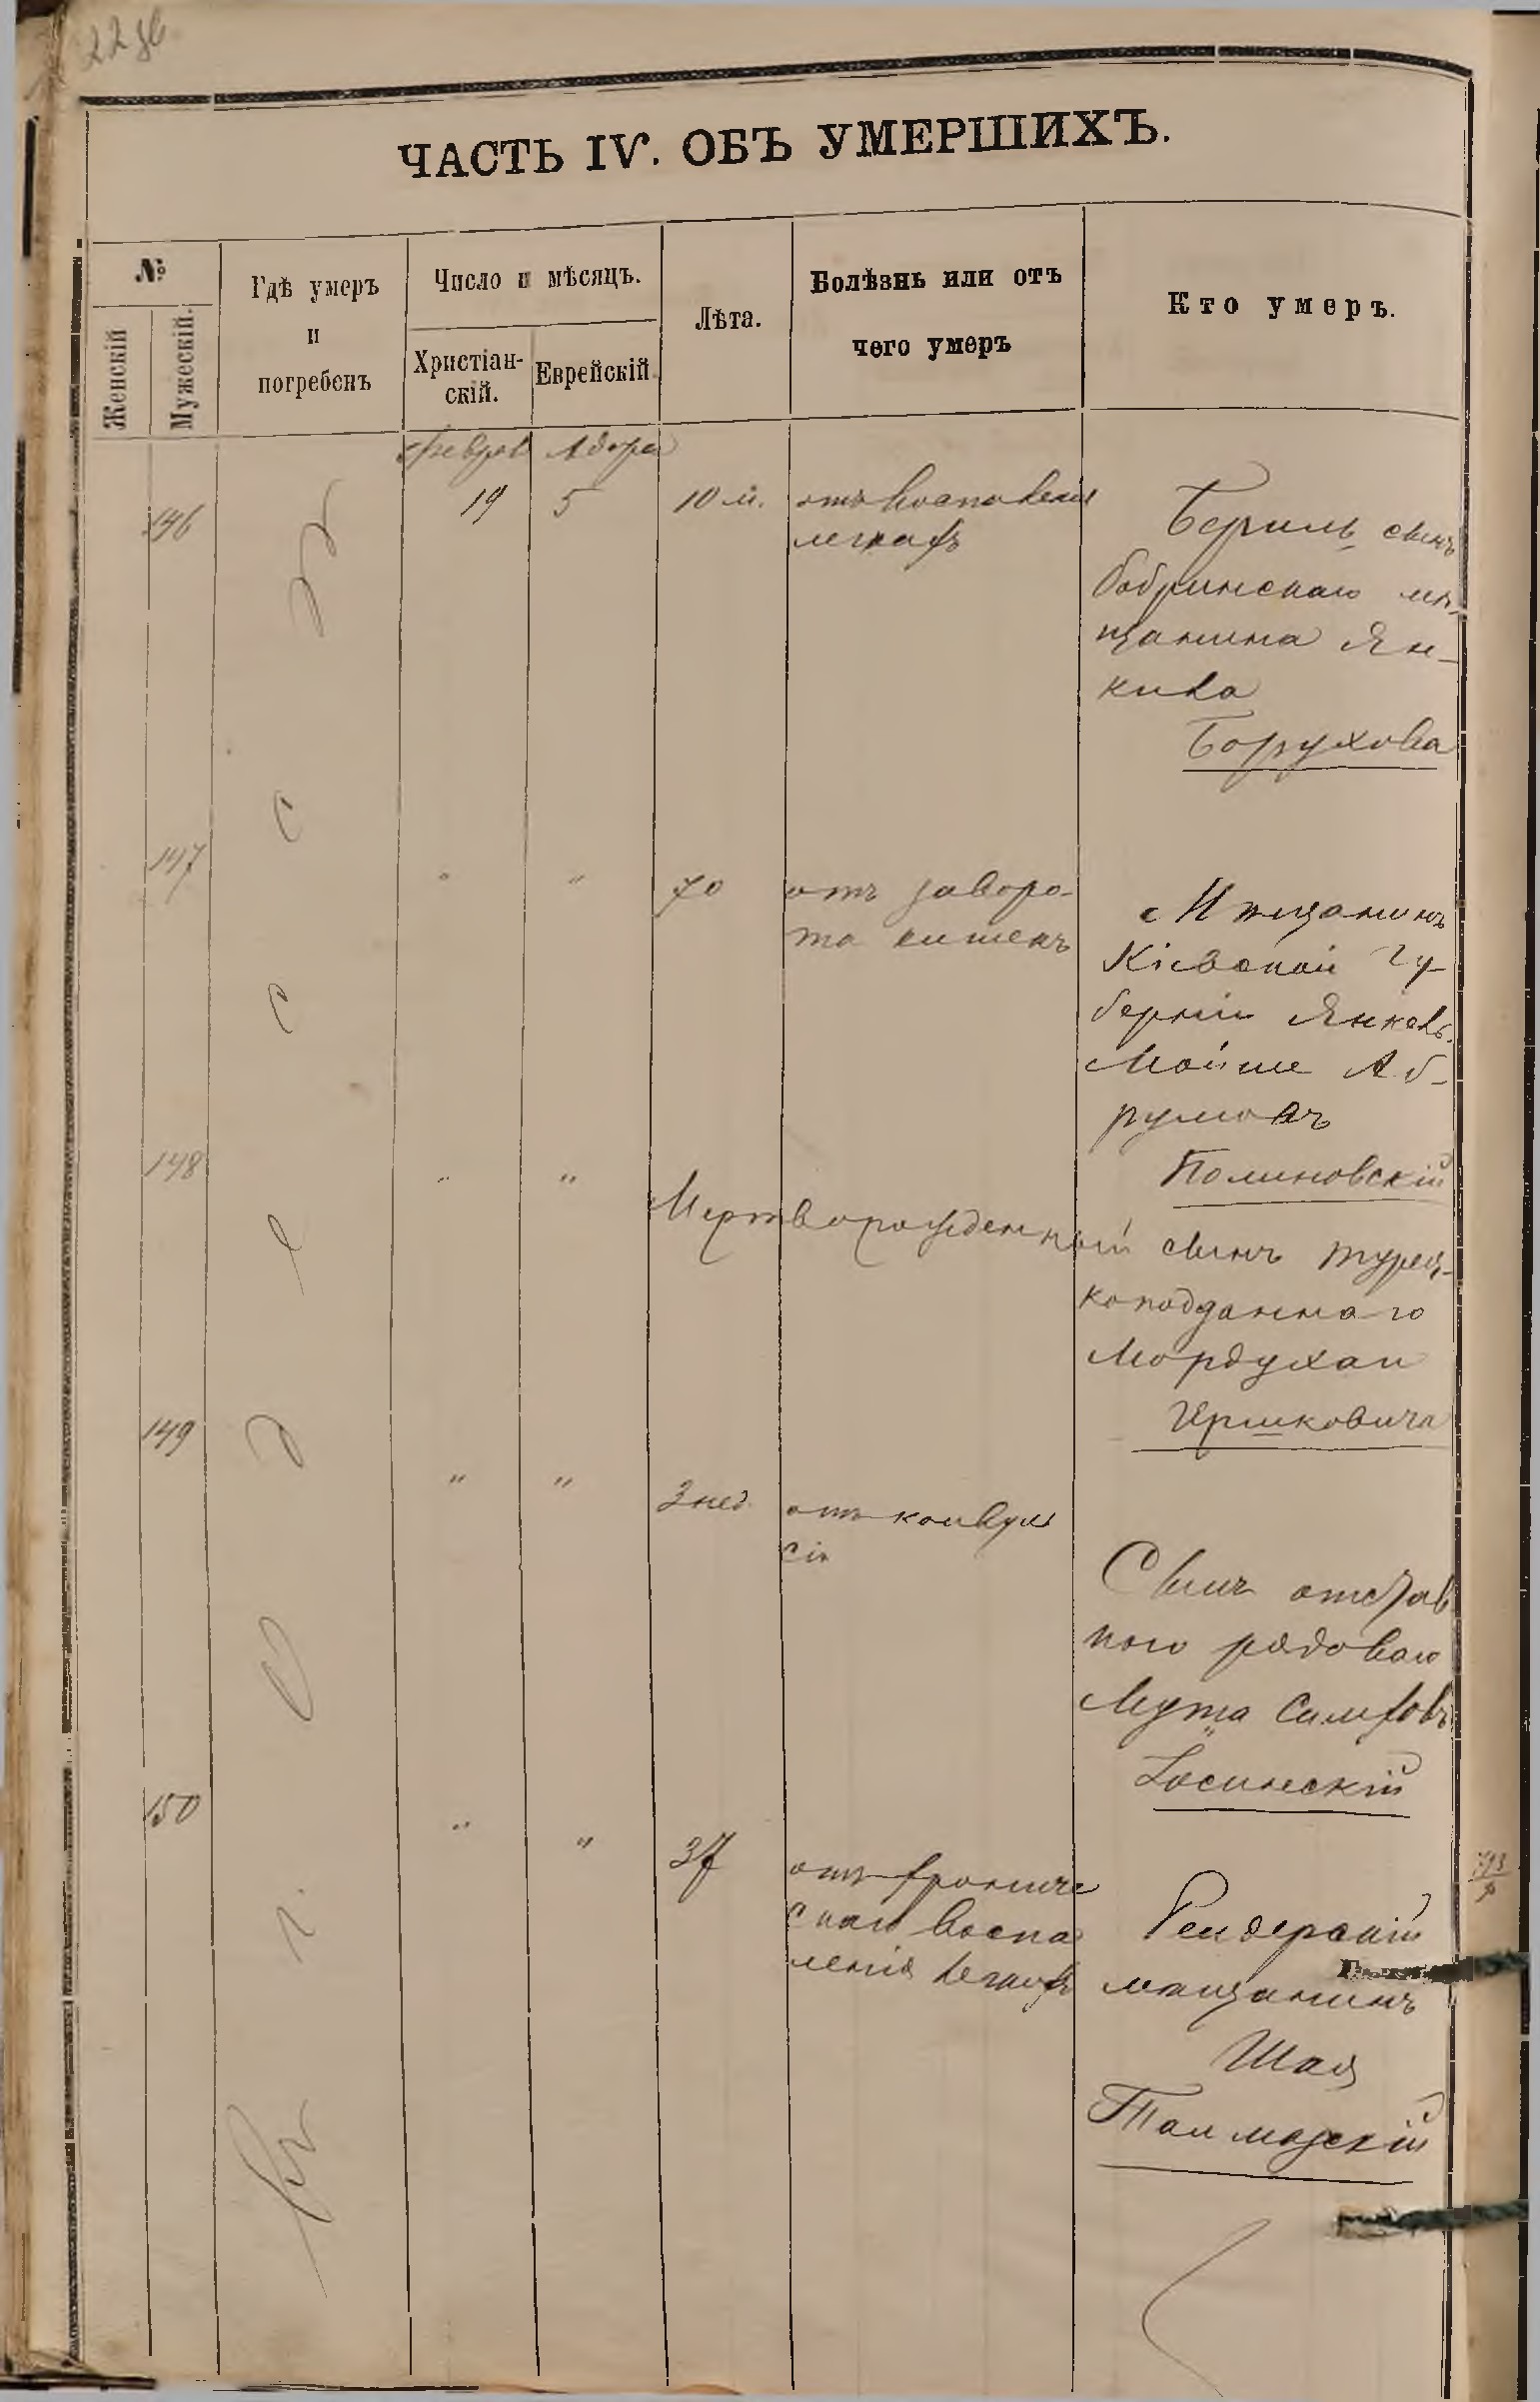 22 об
ЧАСТЬ IV. ОБЪ УМЕРШИХЪ.
№
Женскій
Мужескій.
Гдѣ умеръ
и
погребенъ
Число и мѣсяцъ.
Христіан-
скій.
Еврейскій.
Лѣта.
Болѣзнь или отъ
чего умеръ
Кто умеръ.
Феврал Адора
въ Одессѣ
146
19 5 10 м.
отъ воспаления
легкахъ
Бериль сынъ
бобринскаго мѣ-
щанина Ян-
кива
Борухова
147
" " 70
отъ заворо-
та кишекъ
Мѣщанинъ
Кіевской гу-
берніи Янкель
Мойше Аб-
румовъ
Полиновскій
148
" "
Мертворожденный сынъ турец-
коподданнаго
Мордухаи
Иршковича
149
" " 3 нед
отъ конвуль
сіи
Сынъ отстав
ного рядоваго
Мута
Лосинскій
150
" " 37
отъ хрониче
скаго воспа
ленія легкихъ
мѣщанинъ
Шая
Талмазскій